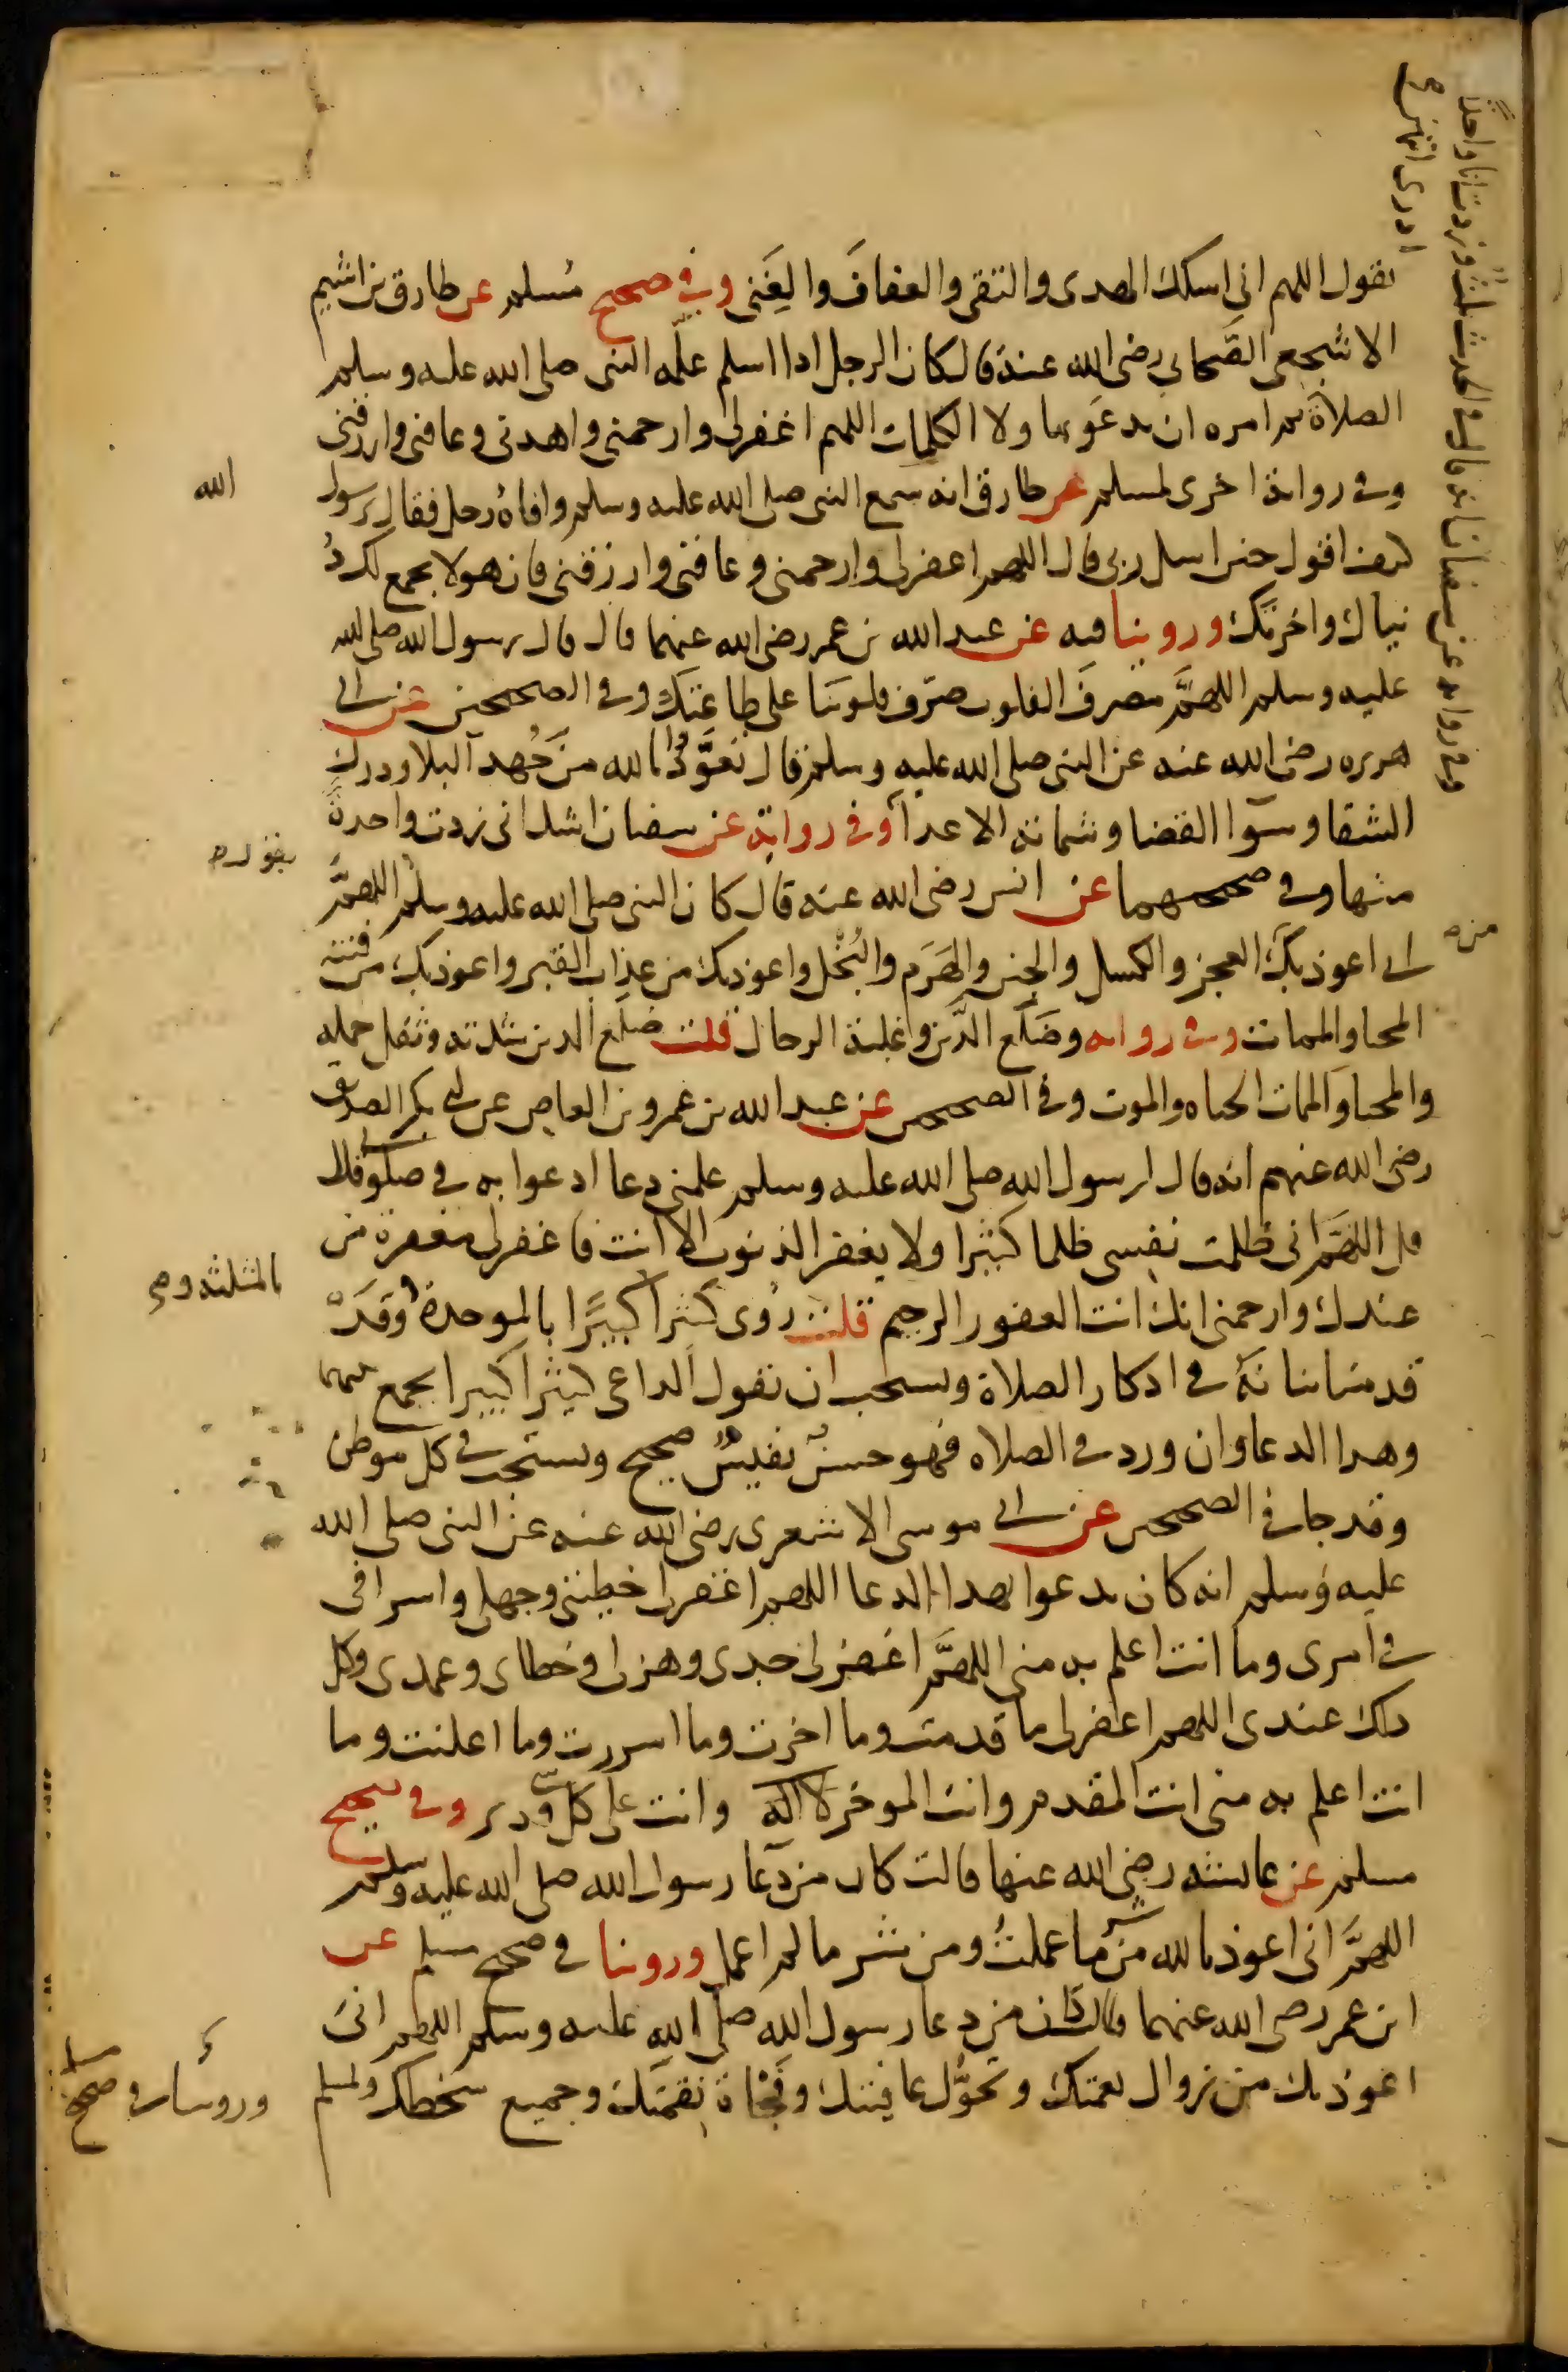 يقول اللهم انى اسلك الهدى والتقى والعفاف والغنى وفى صحيح مسلم عن طارق بن اشيم
الاشجعى الصحابى رضى الله عنه قال كان الرجل اذا اسلم علمه النبى صلى الله عليه وسلم
الصلاة ثم امره ان يدعو بهاولا الكلمات اللهم اغفر لى وارحمنى واهدنى وعافنى وارزقنى
وفى رواية اخرى لمسلم عن طارق انه سمع النبى صلى الله عليه وسلم وافاه رجل فقال يرسول
الله
كيف اقول حين اسل ربى قال اللهم اغفر لى وارحمنى وعافنى وارزقنى فان هولا يجمع لك د
نياك واخرتك وروينا فيه عن عبد الله بن عمر رضى الله عنهما قال قال رسول الله صلى الله
عليه وسلم اللهم مصرف القلوب صرف قلوبنا على طاعتك وفى الصحيحين عن ابى
هريره رضى الله عنه عن النبى صلى الله عليه وسلم قال تعوذوا بالله من جهد البلا ودرك
الشقا وسوا القضا وشماتة الاعدا وفى رواية عن سفيان اشك انى زدت واحدة
منها وفى صحيحهما عن انس رضى الله عنه قال كان النبى صلى الله عليه وسلم اللهم
يقول
انى اعوذ بك العجز والكسل والجبن والهرم والبخل واعوذ بك من عذاب القبر واعوذ بك من فتنة
من
المحيا والممات وفى روايه وضلع الدين وغلبة الرجال قلت ضلع الدين شدته وثقل حمله
والمحيا والممات الحياه والموت وفى الصحيحين عن عبد الله بن عمرو بن العاص عن ابى بكر الصديق
رضى الله عنهم انه قال لرسول الله صلى الله عليه وسلم علمنى دعا ادعوا به فى صلاتى قال
قل اللهم انى ظلمت نفسى ظلما كثيرا ولا يغفر الذنوب الا انت فاغفر لى مغفرة من
عندك وارحمنى انك انت الغفور الرحيم قلت روى كثيرا كبيرا بالموحدة وقد
بالمثلثه و
قدمنا بيانه فى اذكار الصلاة ويستحب ان يقول الداعى كثيرا كبيرا يجمع بينهما
وهذا الدعا وان ورد فى الصلاه فهو حسن نفيس صحيح ويستحب فى كل موطن
وقد جا فى الصحيحين عن ابى موسى الاشعرى رضى الله عنه عن النبى صلى الله
عليه وسلم انه كان يدعوا بهذا الدعا اللهم اغفر لى خطيئتى وجهلى واسرافى
فى امرى وما انت اعلم به منى اللهم اغفر لى جدى وهزلى وخطاى وعمدى وكل
ذلك عندى اللهم اغفر لى ما قدمت وما اخرت وما اسررت وما اعلنت وما
انت اعلم به منى انت المقدم وانت الموخر وانت على كل شى قدير وفى صحيح
مسلم عن عايشه رضى الله عنها قالت كان من دعا رسول الله صلى الله عليه وسلم
اللهم انى اعوذ بالله من شر ما عملت ومن شر ما لم اعمل وروينا فى صحيح مسلم عن
ابن عمر رضى الله عنهما قال كان من دعا رسول الله صلى الله عليه وسلم اللهم انى
اعوذ بك من زوال نعمتك وتحول عافيتك وفجاة نقمتك وجميع سخطك ولمسلم
وروينا فى صحيح مسلم
وفى روايه عن سفيان انه قال فى الحديث ثلث وزدت انا واحدا
ادرى ايتهن هى